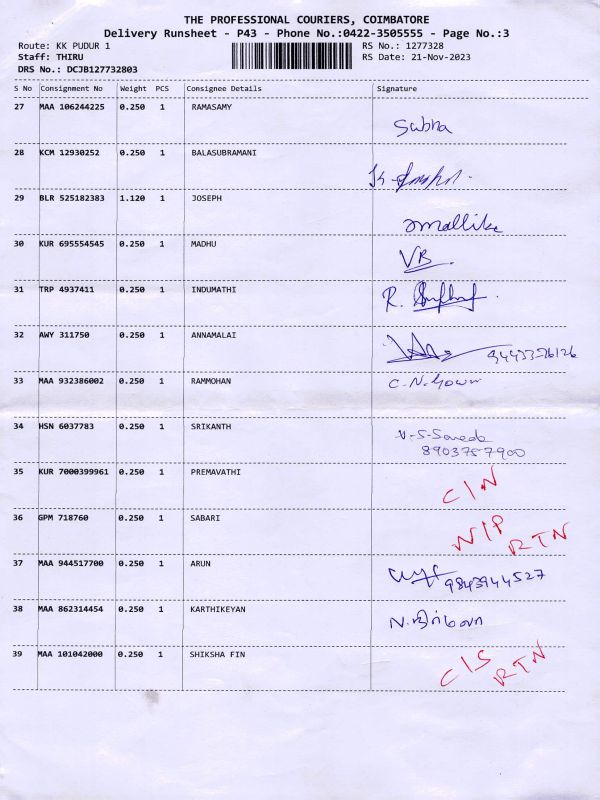 THE PROFESSIONAL COURIERS, COIMBATORE
Delivery Runsheet - P43 - Phone No.:0422-3505555 - Page No.:3
Route: KK PUDUR 1 RS No.: 1277328
Staff: THIRU RS Date: 21-Nov-2023
DRS No.: DCJB127732803
S No Consignment No Weight PCS Consignee Details Signature
27 MAA 106244225 0.250 1 RAMASAMY
Subha
28 KCM 12930252 0.250 1 BALASUBRAMANI
29 BLR 525182383 1.120 1 JOSEPH
Mallika
30 KUR 695554545 0.250 1 MADHU
VB
31 TRP 4937411 0.250 1 INDUMATHI
R.
32 AWY 311750 0.250 1 ANNAMALAI
33 MAA 932386002 0.250 1 RAMMOHAN
C.N.
34 HSN 6037783 0.250 1 SRIKANTH
V-S-
8903757900
35 KUR 7000399961 0.250 1 PREMAVATHI
C/N
36 GPM 718760 0.250 1 SABARI
N/P RTN
37 MAA 944517700 0.250 1 ARUN
9843944527
38 MAA 862314454 0.250 1 KARTHIKEYAN
N.
39 MAA 101042000 0.250 1 SHIKSHA FIN
C/S RTN